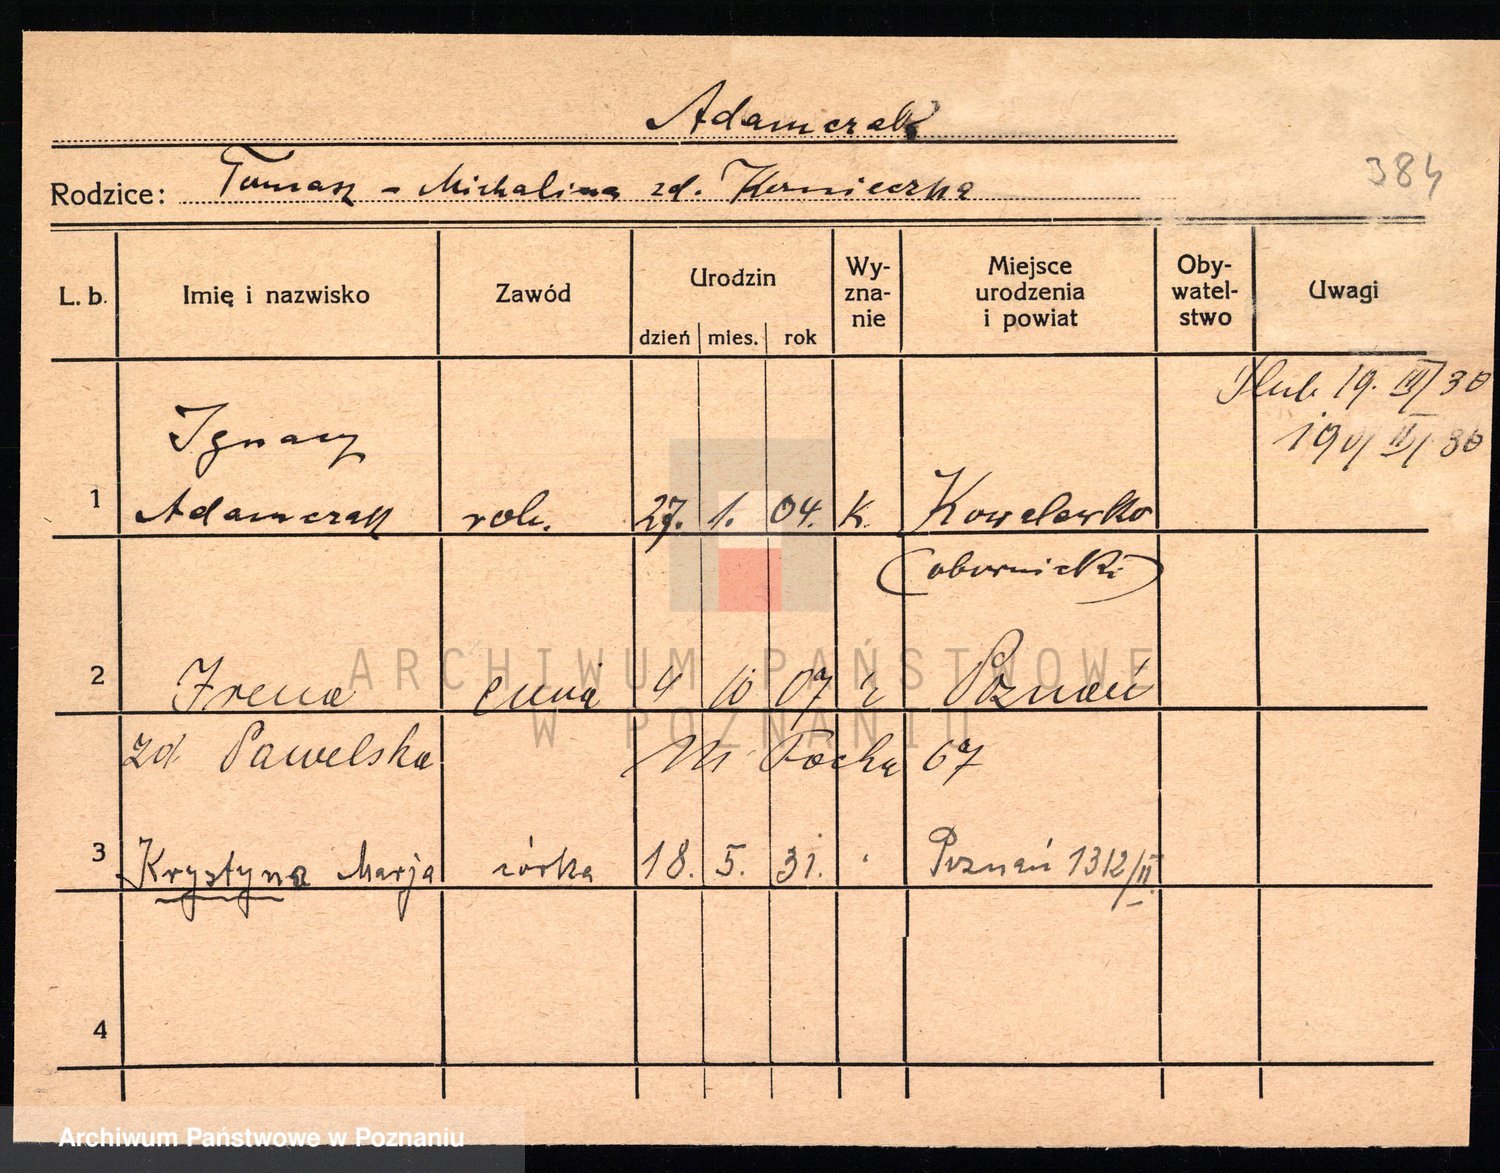 Adamczak
Rodzice: Tomasz - Michalina zd. Kornieczka
384
L. b. Imię i nazwisko Zawód Urodzin Wy-zna-nie Miejsce urodzenia i powiat Oby-watel-stwo Uwagi
dzień mies. rok
Ślub 19. III/30
Ignacy
1 Adamczak rob. 27. 1. 04. k. Kowalewko
(obornicki)
2 Irena 4 10 07 Poznań
zd. Pawelska M Focha 67
3 Krystyna Marja córka 18. 5. 31. Poznań 1312/II.
4
ARCHIWUM PAŃSTWOWE
W POZNANIU
Archiwum Państwowe w Poznaniu